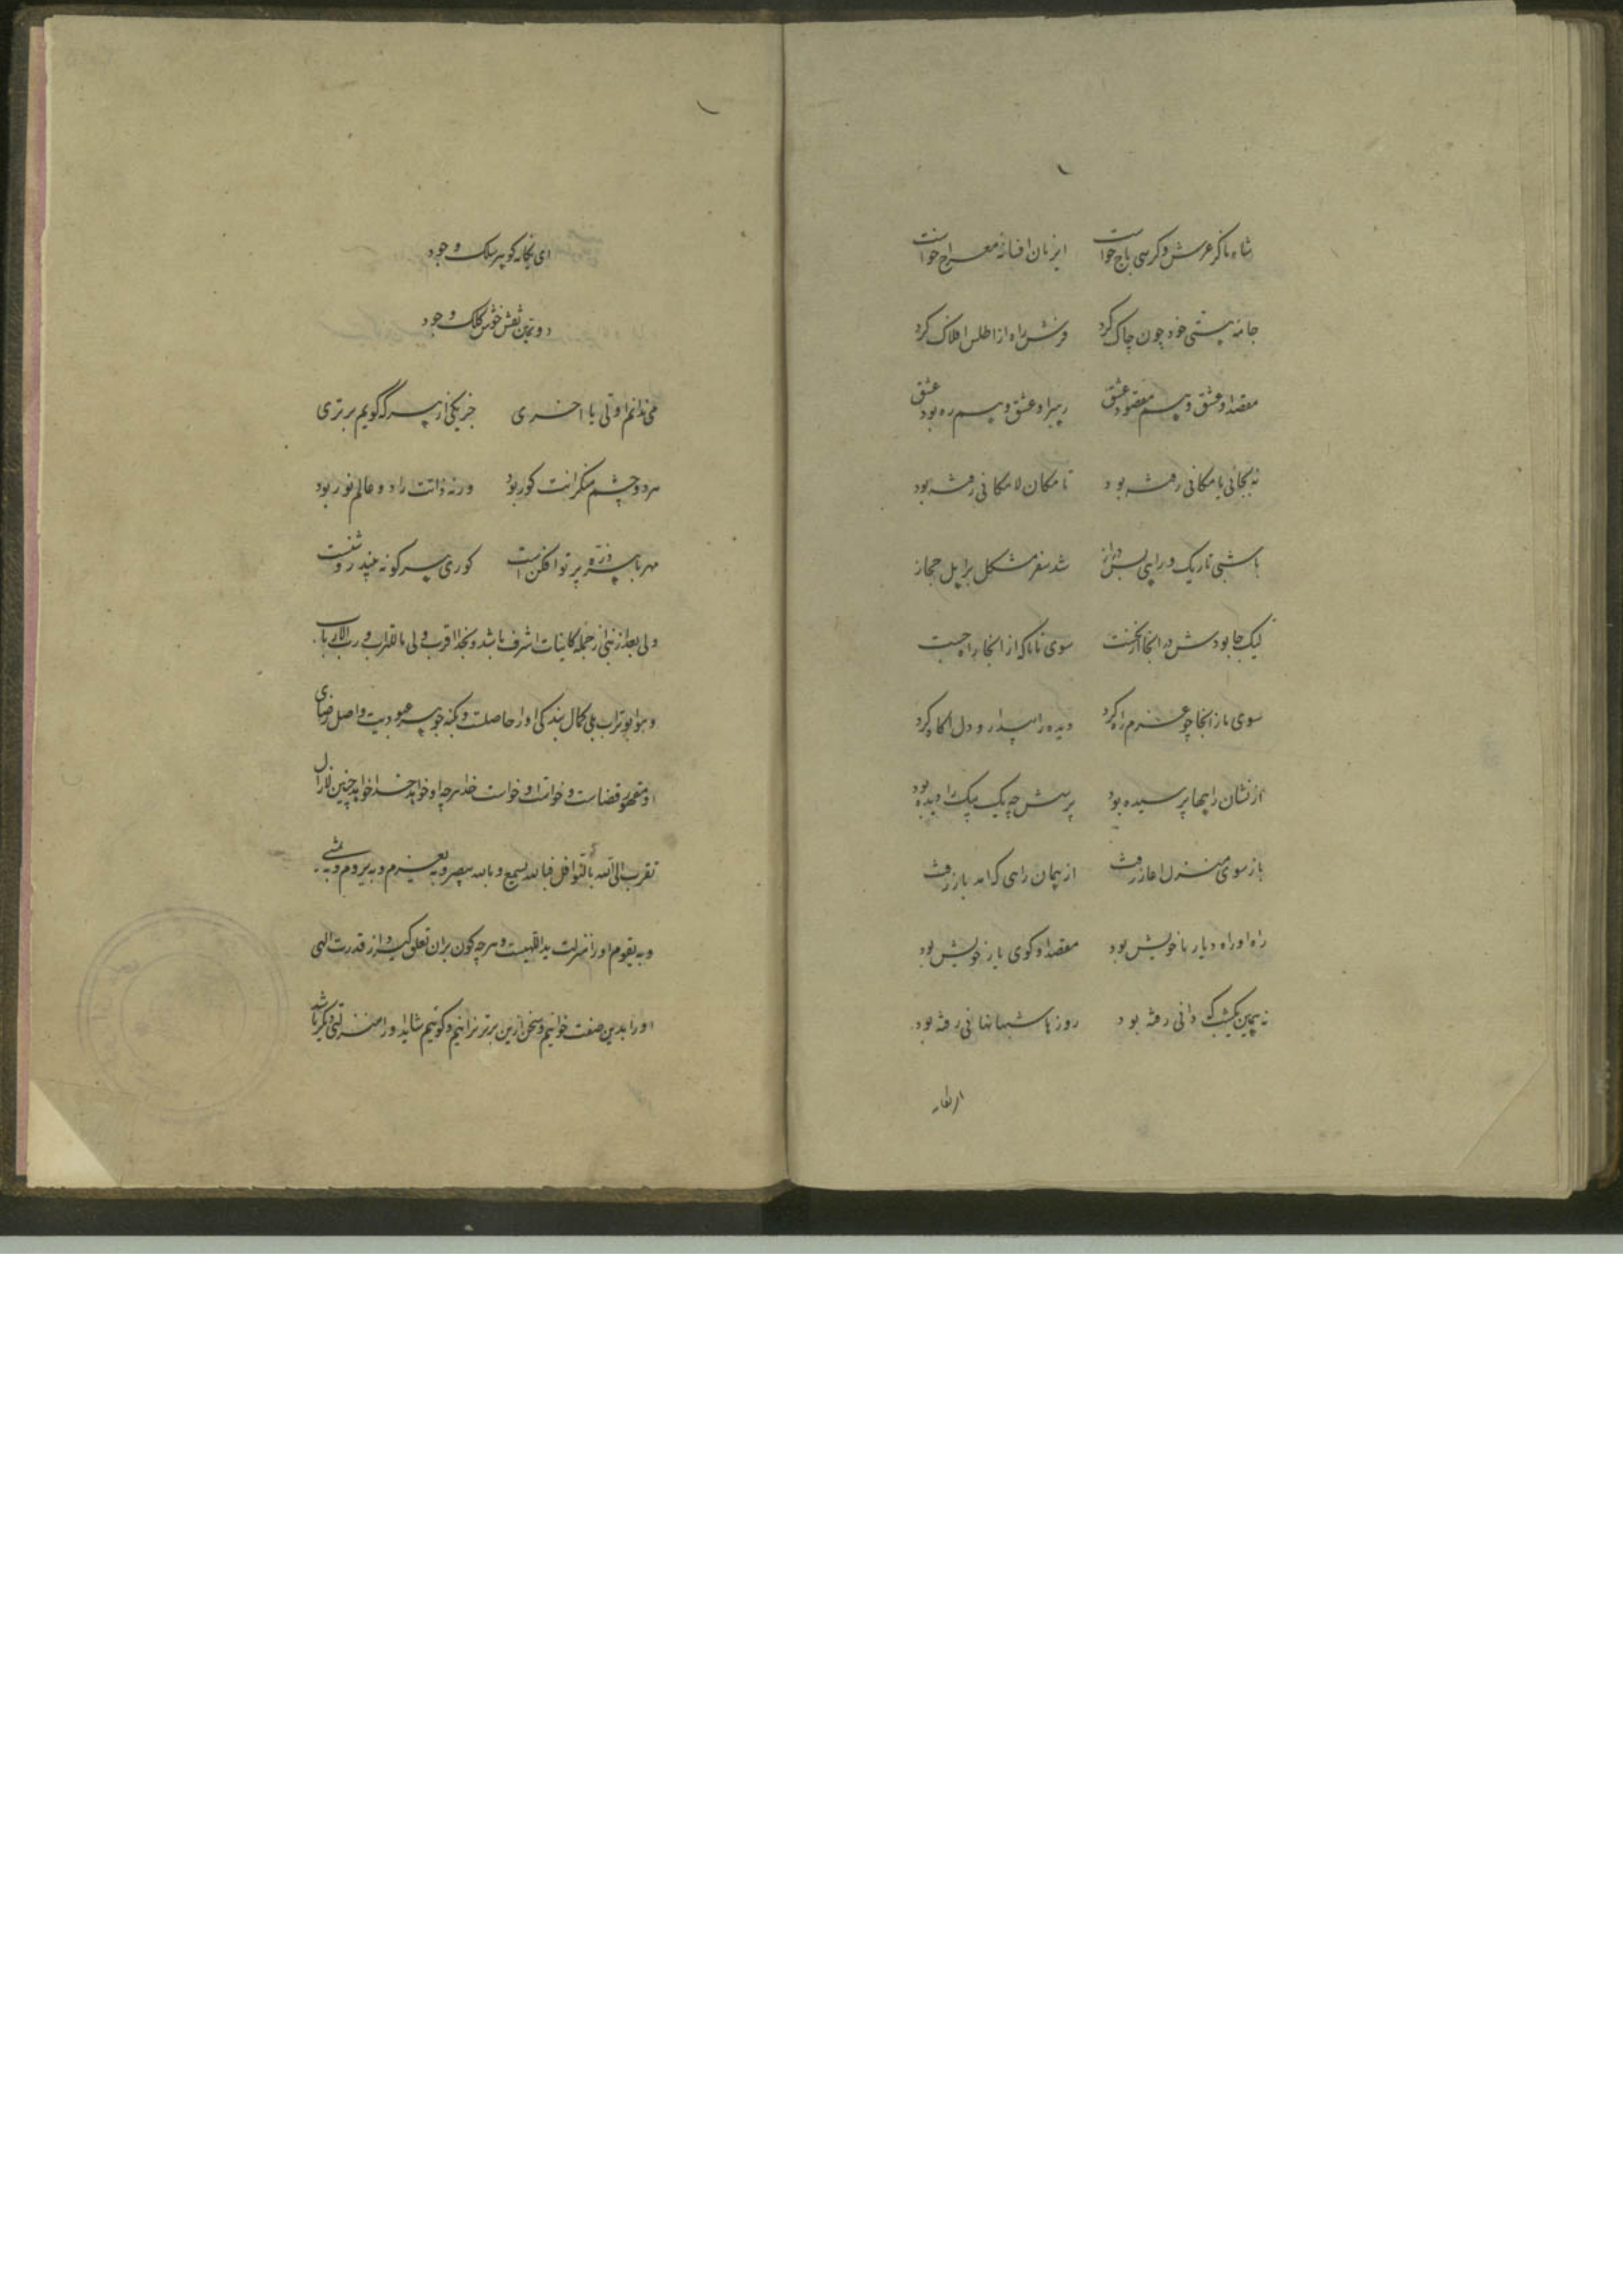 شاه ما کز عرش و کرسی باج خواست این زمان افسانه معراج خواست
جامه هستی خود چون چاک کرد فرش راه از اطلس افلاک کرد
مقصد او عشق و هم مقصود عشق رهبر او عشق و هم ره بود عشق
نه بجائی با مکانی رفته بود تا مکان لا مکانی رفته بود
با شبی تاریک و راهی بس دراز شد سفر مشکل بر اهل حجاز
لیک جا بودش در انجا از نخست سوی ما تا که از انجا راه جست
سوی ما ز انجا چو عزم راه کرد دیده را بیدار و دل اگاه کرد
از نشان راهها پرسیده بود پرسش چه یک بیک را دیده بود
باز سوی منزل اغاز رفت از همان راهی که امد باز رفت
راه او راه دیار با خویش بود مقصد او کوی یار خویش بود
نه همین یکشب که دانی رفته بود روز با شبها نهانی رفته بود
ای یگانه گوهر سلک وجود
دویمین نقش خوش کلک وجود
می ندانم اولی یا اخری جز یکی از هر که گویم برتری
هر دو چشم منکرانت کور بود ورنه ذاتت را دو عالم نور بود
مهر با هر ذره پرتو افکن است کوری هر کو نه بیند روشنست
ولی بعد از نبی از جمله کاینات اشرف باشد و بخدا اقرب ولی ما لقرب و رب الارباب
و هو ابو تراب بلی کمال بندگی او را حاصلست و بکنه جوهر عبودیت واصل رضای
او مقهور قضاست و خواست او خواست خدا هر چه او خواهد خدا خواهد چنین
تقرب الی الله بالنوافل فبالله یسمع و بالله یبصر و به یعزم و به یروم و به یمشی
و به یقوم او را منزلت ید اللهیست و هر چه کون بران تعلق گیرد از قدرت الهی
او را بدین صفت خوانیم و سخن ازین برتر نرانیم و گوئیم شاید او را منزلتی دیگر باشد